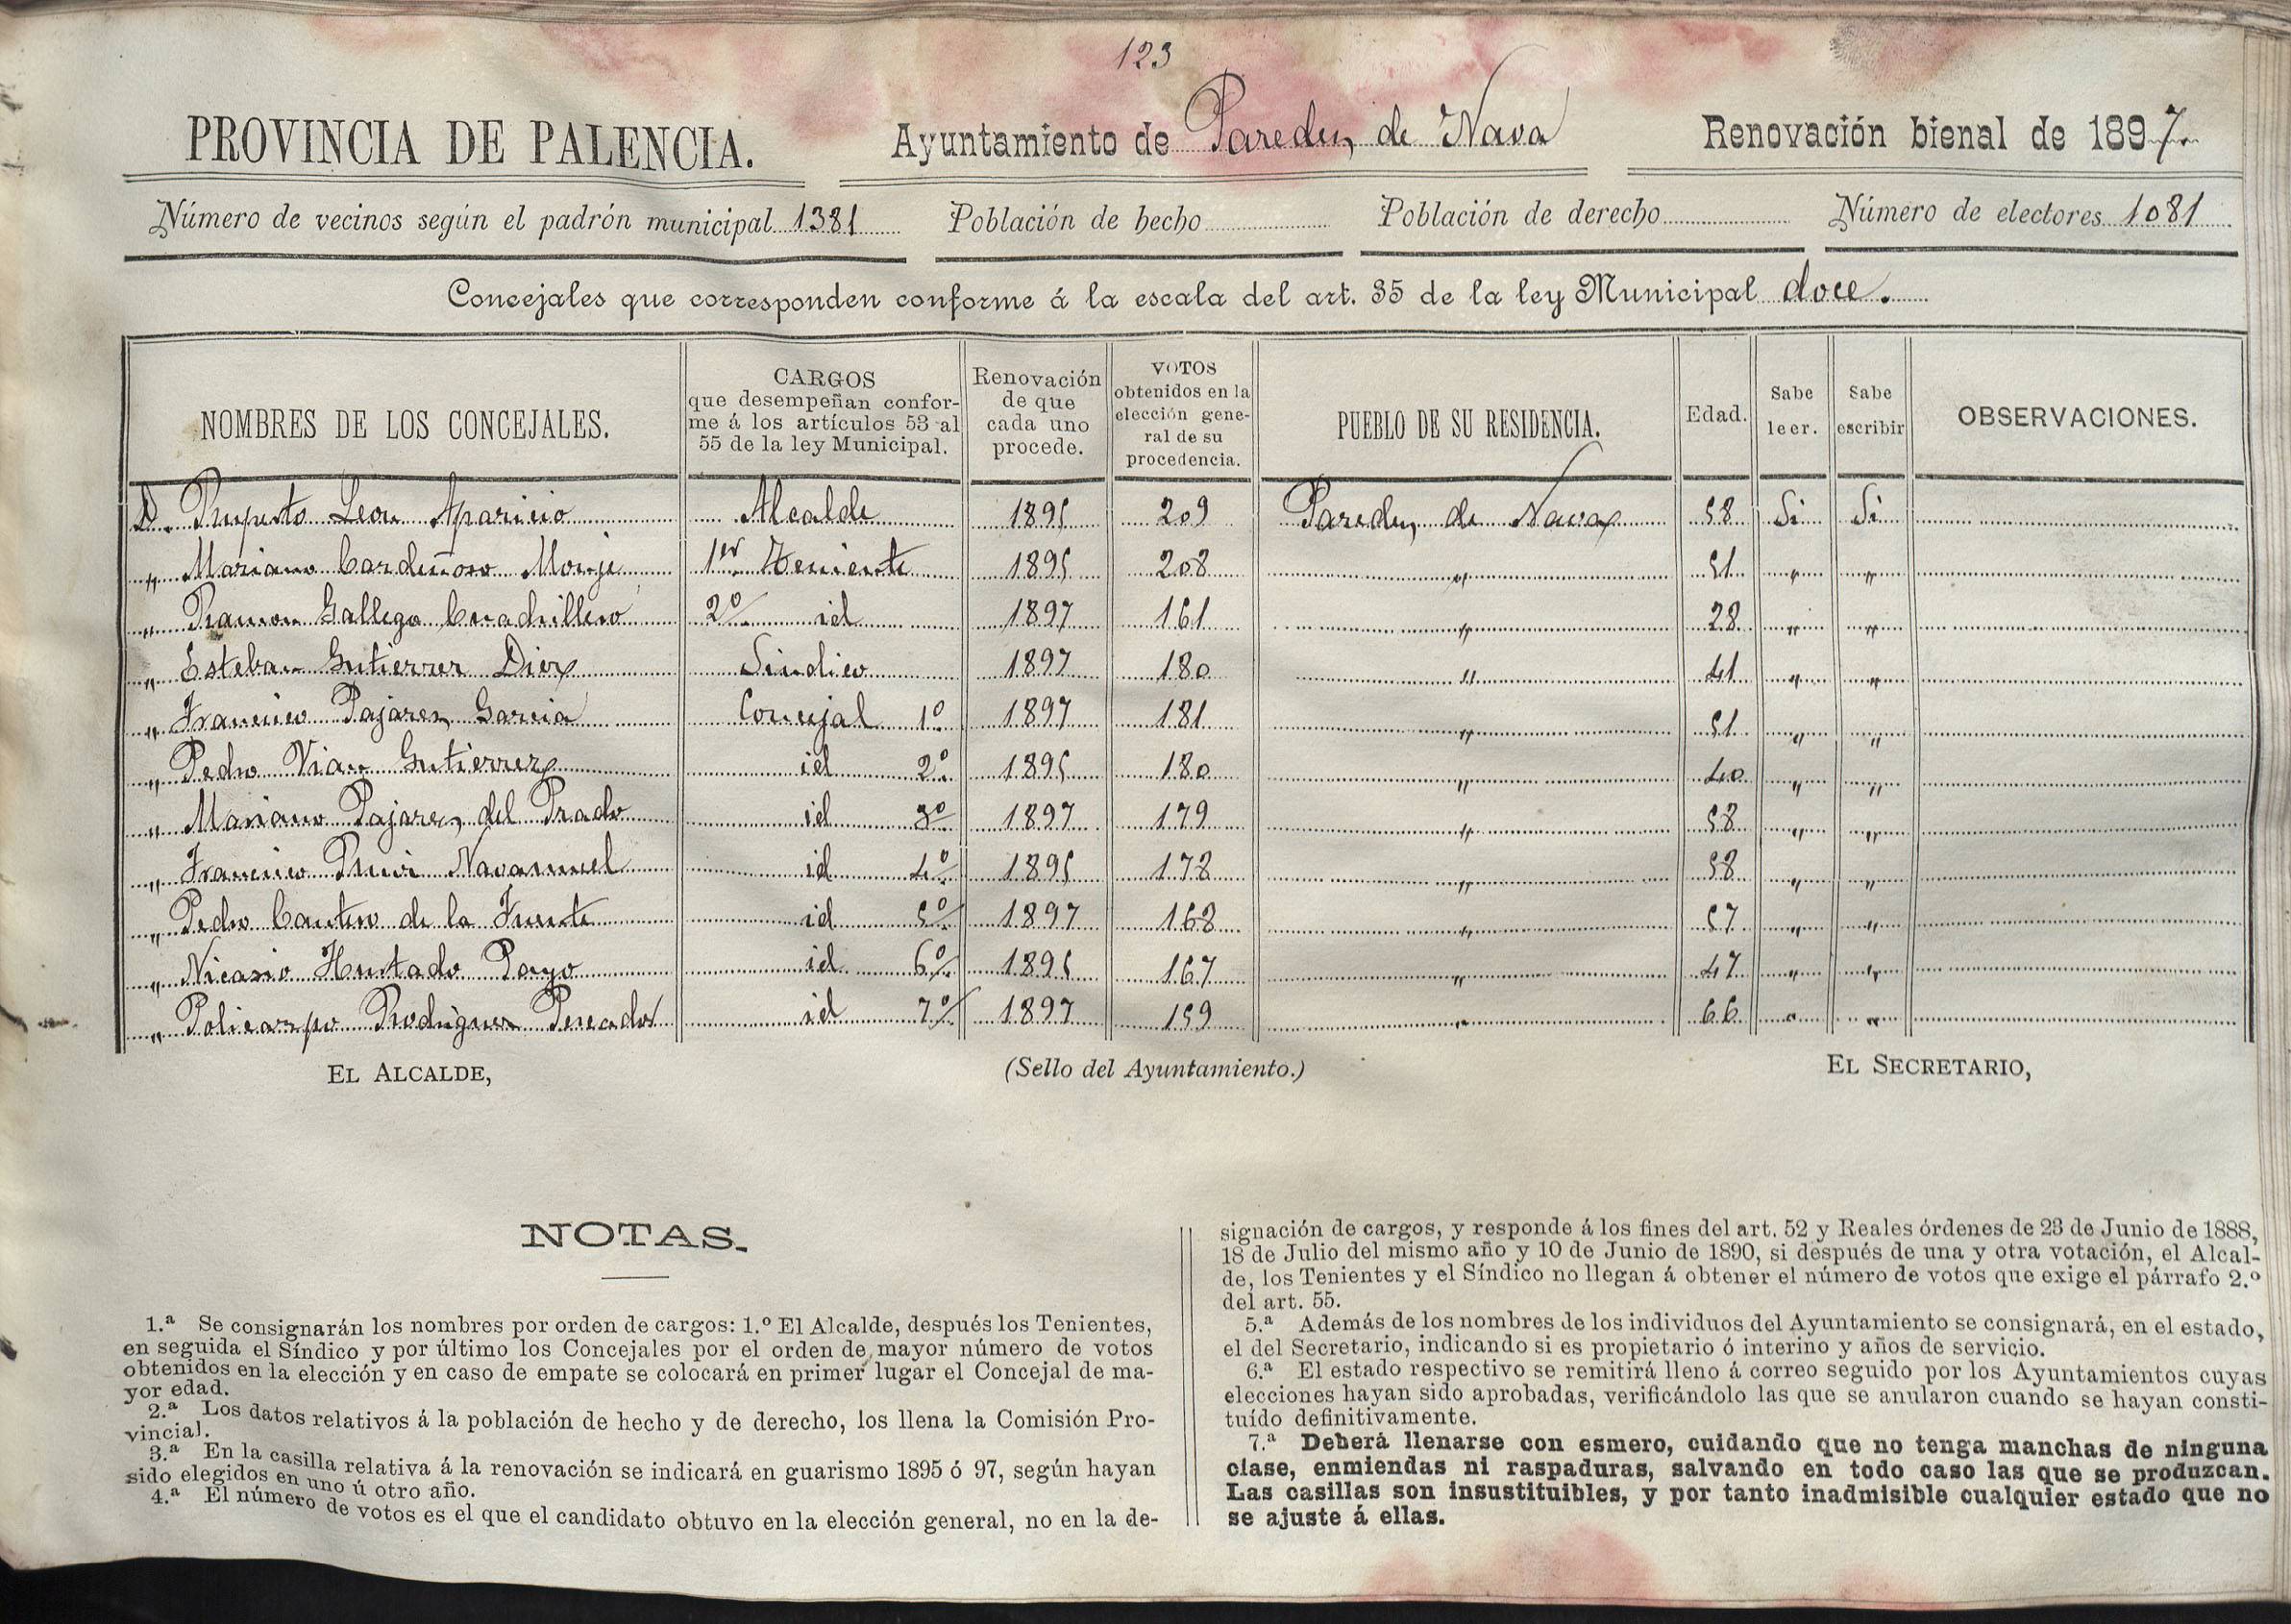 123
PROVINCIA DE PALENCIA. Ayuntamiento de Paredes de Nava Renovación bienal de 1897.
Número de vecinos según el padrón municipal 1381 Población de hecho Población de derecho Número de electores 1081
Concejales que corresponden conforme á la escala del art. 35 de la ley Municipal doce.
NOMBRES DE LOS CONCEJALES.
CARGOS
que desempeñan confor-
me á los artículos 53 al
55 de la ley Municipal.
Renovación
de que
cada uno
procede.
VOTOS
obtenidos en la
elección gene-
ral de su
procedencia.
PUEBLO DE SU RESIDENCIA.
Edad.
Sabe
leer.
Sabe
escribir
OBSERVACIONES.
D. Ruperto Leon Aparicio Alcalde 1895 209 Paredes de Nava 58 Si Si
„ Mariano Cardeñoso Monje 1er Teniente 1895 208 „ 51 „ „
„ Ramon Gallego Cuadrillero 2º id 1897 161 „ 28 „ „
„ Esteban Gutierrez Diez Sindico 1897 180 „ 41 „ „
„ Francisco Pajares Garcia Concejal 1º 1897 181 „ 51 „ „
„ Pedro Vian Gutierrez id 2º 1895 180 „ 40 „ „
„ Mariano Pajares del Prado id 3º 1897 179 „ 58 „ „
„ Francisco Navamuel id 4º 1895 178 „ 58 „ „
„ Pedro Cantero de la Fuente id 5º 1897 168 „ 57 „ „
„ Nicasio Hurtado Payo id 6º 1895 167 „ 47 „ „
„ Policarpo Rodriguez Pescador id 7º 1897 159 „ 66 „ „
EL ALCALDE, (Sello del Ayuntamiento.) EL SECRETARIO,
NOTAS.
1.ª Se consignarán los nombres por orden de cargos: 1.º El Alcalde, después los Tenientes,
en seguida el Síndico y por último los Concejales por el orden de mayor número de votos
obtenidos en la elección y en caso de empate se colocará en primer lugar el Concejal de ma-
yor edad.
2.ª Los datos relativos á la población de hecho y de derecho, los llena la Comisión Pro-
vincial.
3.ª En la casilla relativa á la renovación se indicará en guarismo 1895 ó 97, según hayan
sido elegidos en uno ú otro año.
4.ª El número de votos es el que el candidato obtuvo en la elección general, no en la de-
signación de cargos, y responde á los fines del art. 52 y Reales órdenes de 23 de Junio de 1888,
18 de Julio del mismo año y 10 de Junio de 1890, si después de una y otra votación, el Alcal-
de, los Tenientes y el Síndico no llegan á obtener el número de votos que exige el párrafo 2.º
del art. 55.
5.ª Además de los nombres de los individuos del Ayuntamiento se consignará, en el estado,
el del Secretario, indicando si es propietario ó interino y años de servicio.
6.ª El estado respectivo se remitirá lleno á correo seguido por los Ayuntamientos cuyas
elecciones hayan sido aprobadas, verificándolo las que se anularon cuando se hayan consti-
tuído definitivamente.
7.ª Deberá llenarse con esmero, cuidando que no tenga manchas de ninguna
clase, enmiendas ni raspaduras, salvando en todo caso las que se produzcan.
Las casillas son insustituibles, y por tanto inadmisible cualquier estado que no
se ajuste á ellas.